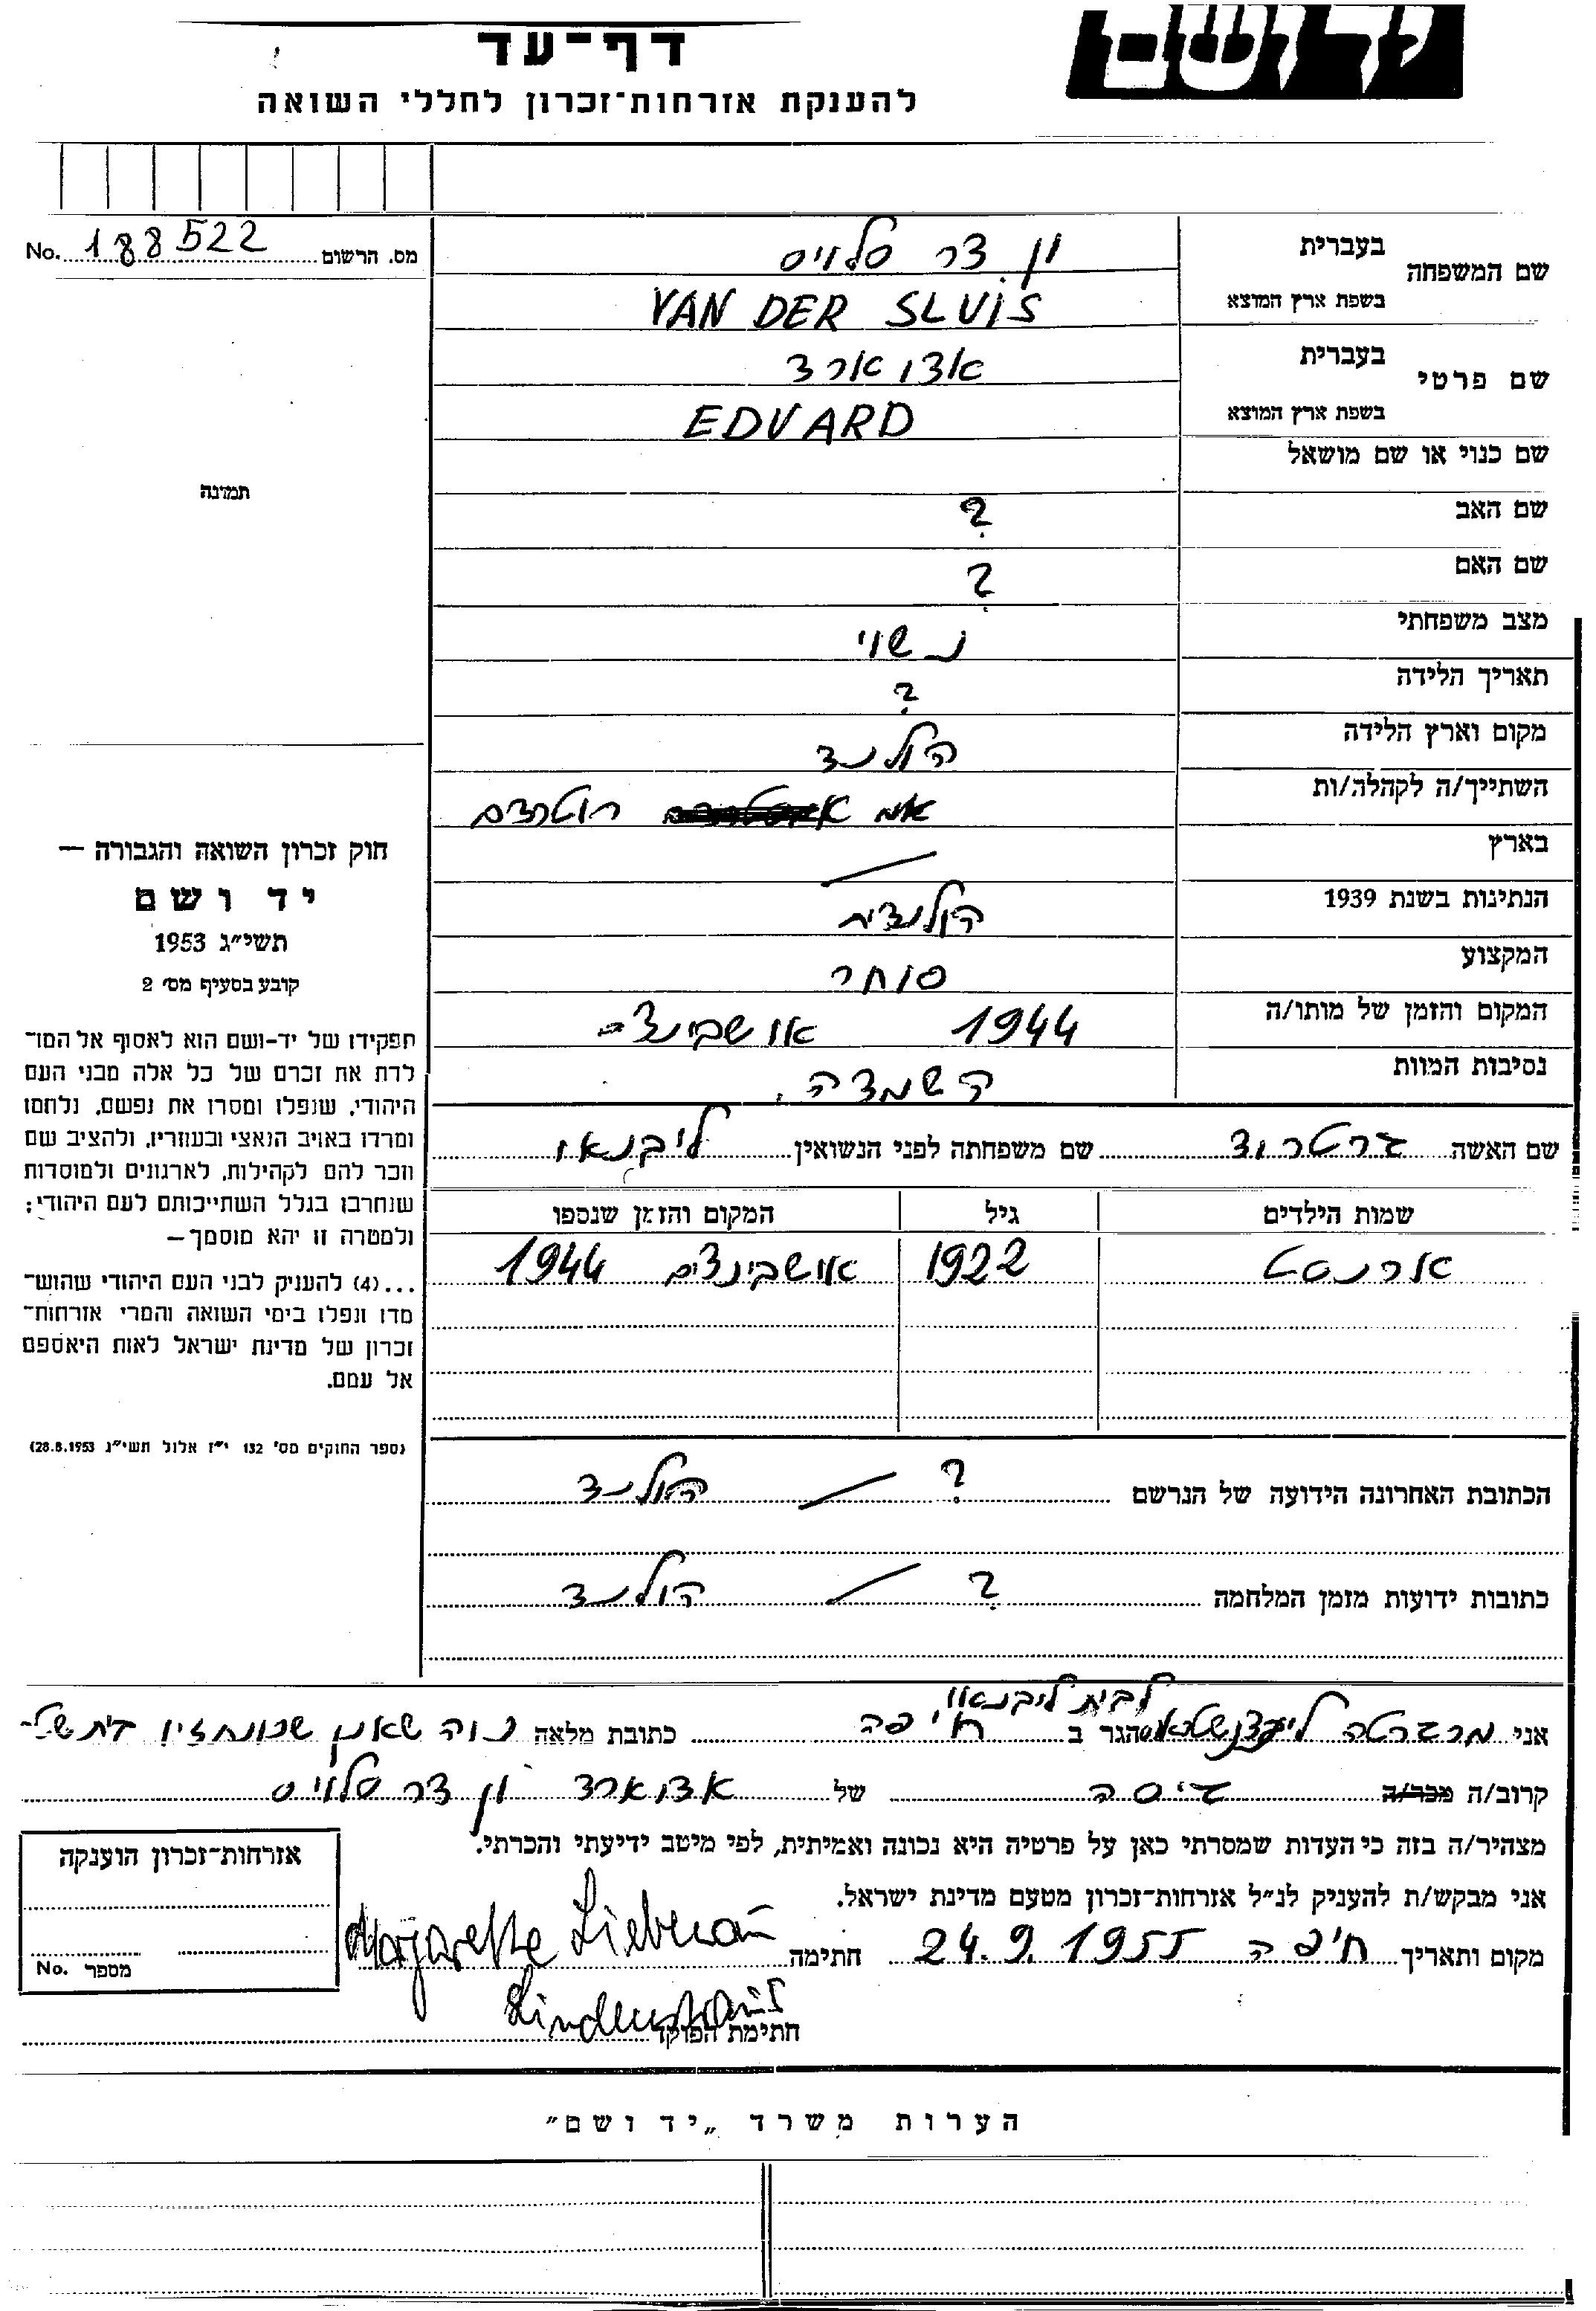 יד ושם
דף־עד
להענקת אזרחות־זכרון לחללי השואה
מס. הרשום 188522 No.
שם המשפחה
בעברית ון דר סלויס
בשפת ארץ המוצא VAN DER SLUIS
שם פרטי
בעברית אדוארד
בשפת ארץ המוצא EDUARD
שם כנוי או שם מושאל
שם האב ?
שם האם ?
מצב משפחתי נשוי
תאריך הלידה ?
מקום וארץ הלידה הולנד
השתייך/ה לקהלה/ות רוטרדם
בארץ
הנתינות בשנת 1939 הולנדית
המקצוע סוחר
המקום והזמן של מותו/ה 1944 אושבינצ-
נסיבות המוות השמדה.
שם האשה גרטרוד שם משפחתה לפני הנשואין ליבנאו
שמות הילדים גיל המקום והזמן שנספו
ארנסט 1922 אושבינצים 1944
הכתובת האחרונה הידועה של הנרשם ? / הולנד
כתובות ידועות מזמן המלחמה ? / הולנד
תמונה
חוק זכרון השואה והגבורה —
יד ושם
תשי״ג 1953
קובע בסעיף מס׳ 2
תפקידו של יד-ושם הוא לאסוף אל המו־
לדת את זכרם של כל אלה מבני העם
היהודי, שנפלו ומסרו את נפשם, נלחמו
ומרדו באויב הנאצי ובעוזריו, ולהציב שם
וזכר להם לקהילות, לארגונים ולמוסדות
שנחרבו בגלל השתייכותם לעם היהודי;
ולמטרה זו יהא מוסמך—
...(4) להעניק לבני העם היהודי שהוש־
מדו ונפלו בימי השואה והמרי אזרחות־
זכרון של מדינת ישראל לאות היאספם
אל עמם.
(ספר החוקים מס׳ 132 י״ז אלול תשי״ג 28.8.1953)
לבית ליבנאו
אני מרגרטה הגר ב חיפה כתובת מלאה נוה שאנן
קרוב/ה מכר/ה גיסה של אדוארד ון דר סלויס
מצהיר/ה בזה כי העדות שמסרתי כאן על פרטיה היא נכונה ואמיתית, לפי מיטב ידיעתי והכרתי.
אני מבקש/ת להעניק לנ״ל אזרחות־זכרון מטעם מדינת ישראל.
מקום ותאריך חיפה 24.9.1955 חתימה Margarethe Liebenau
Lindenstrauss
חתימת הפוקד
אזרחות־זכרון הוענקה
מספר No.
הערות משרד „יד ושם״